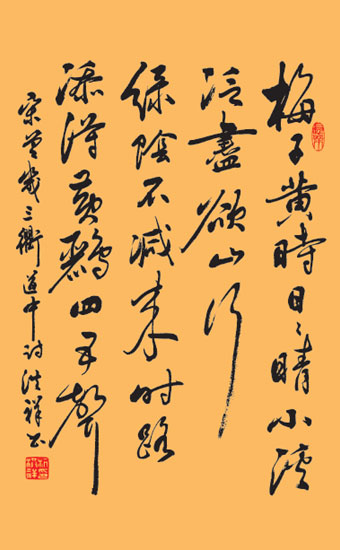 梅子黄時日日晴小溪
泛盡卻山行
绿陰不減来时路
添得黄鸝四五聲
宋曾幾三衢道中詩洪祥书